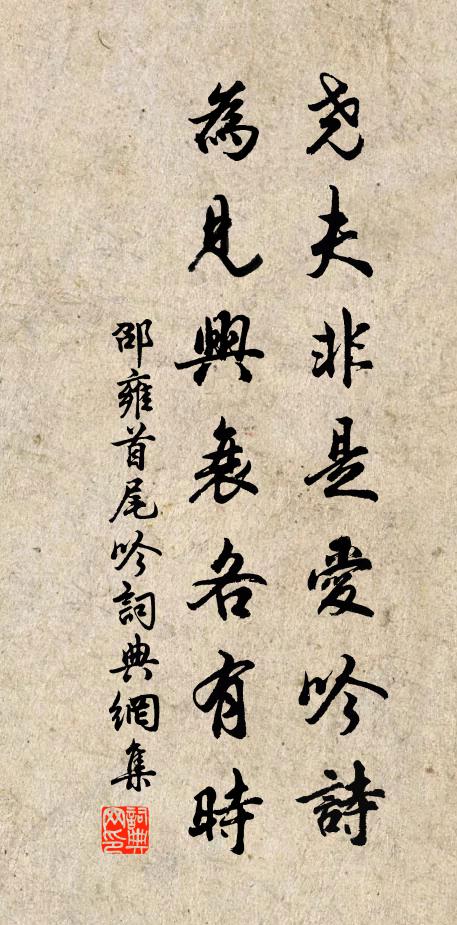 堯夫非是愛吟詩
為見興衰各有時
邵雍首尾吟詞典網集
詞典网印